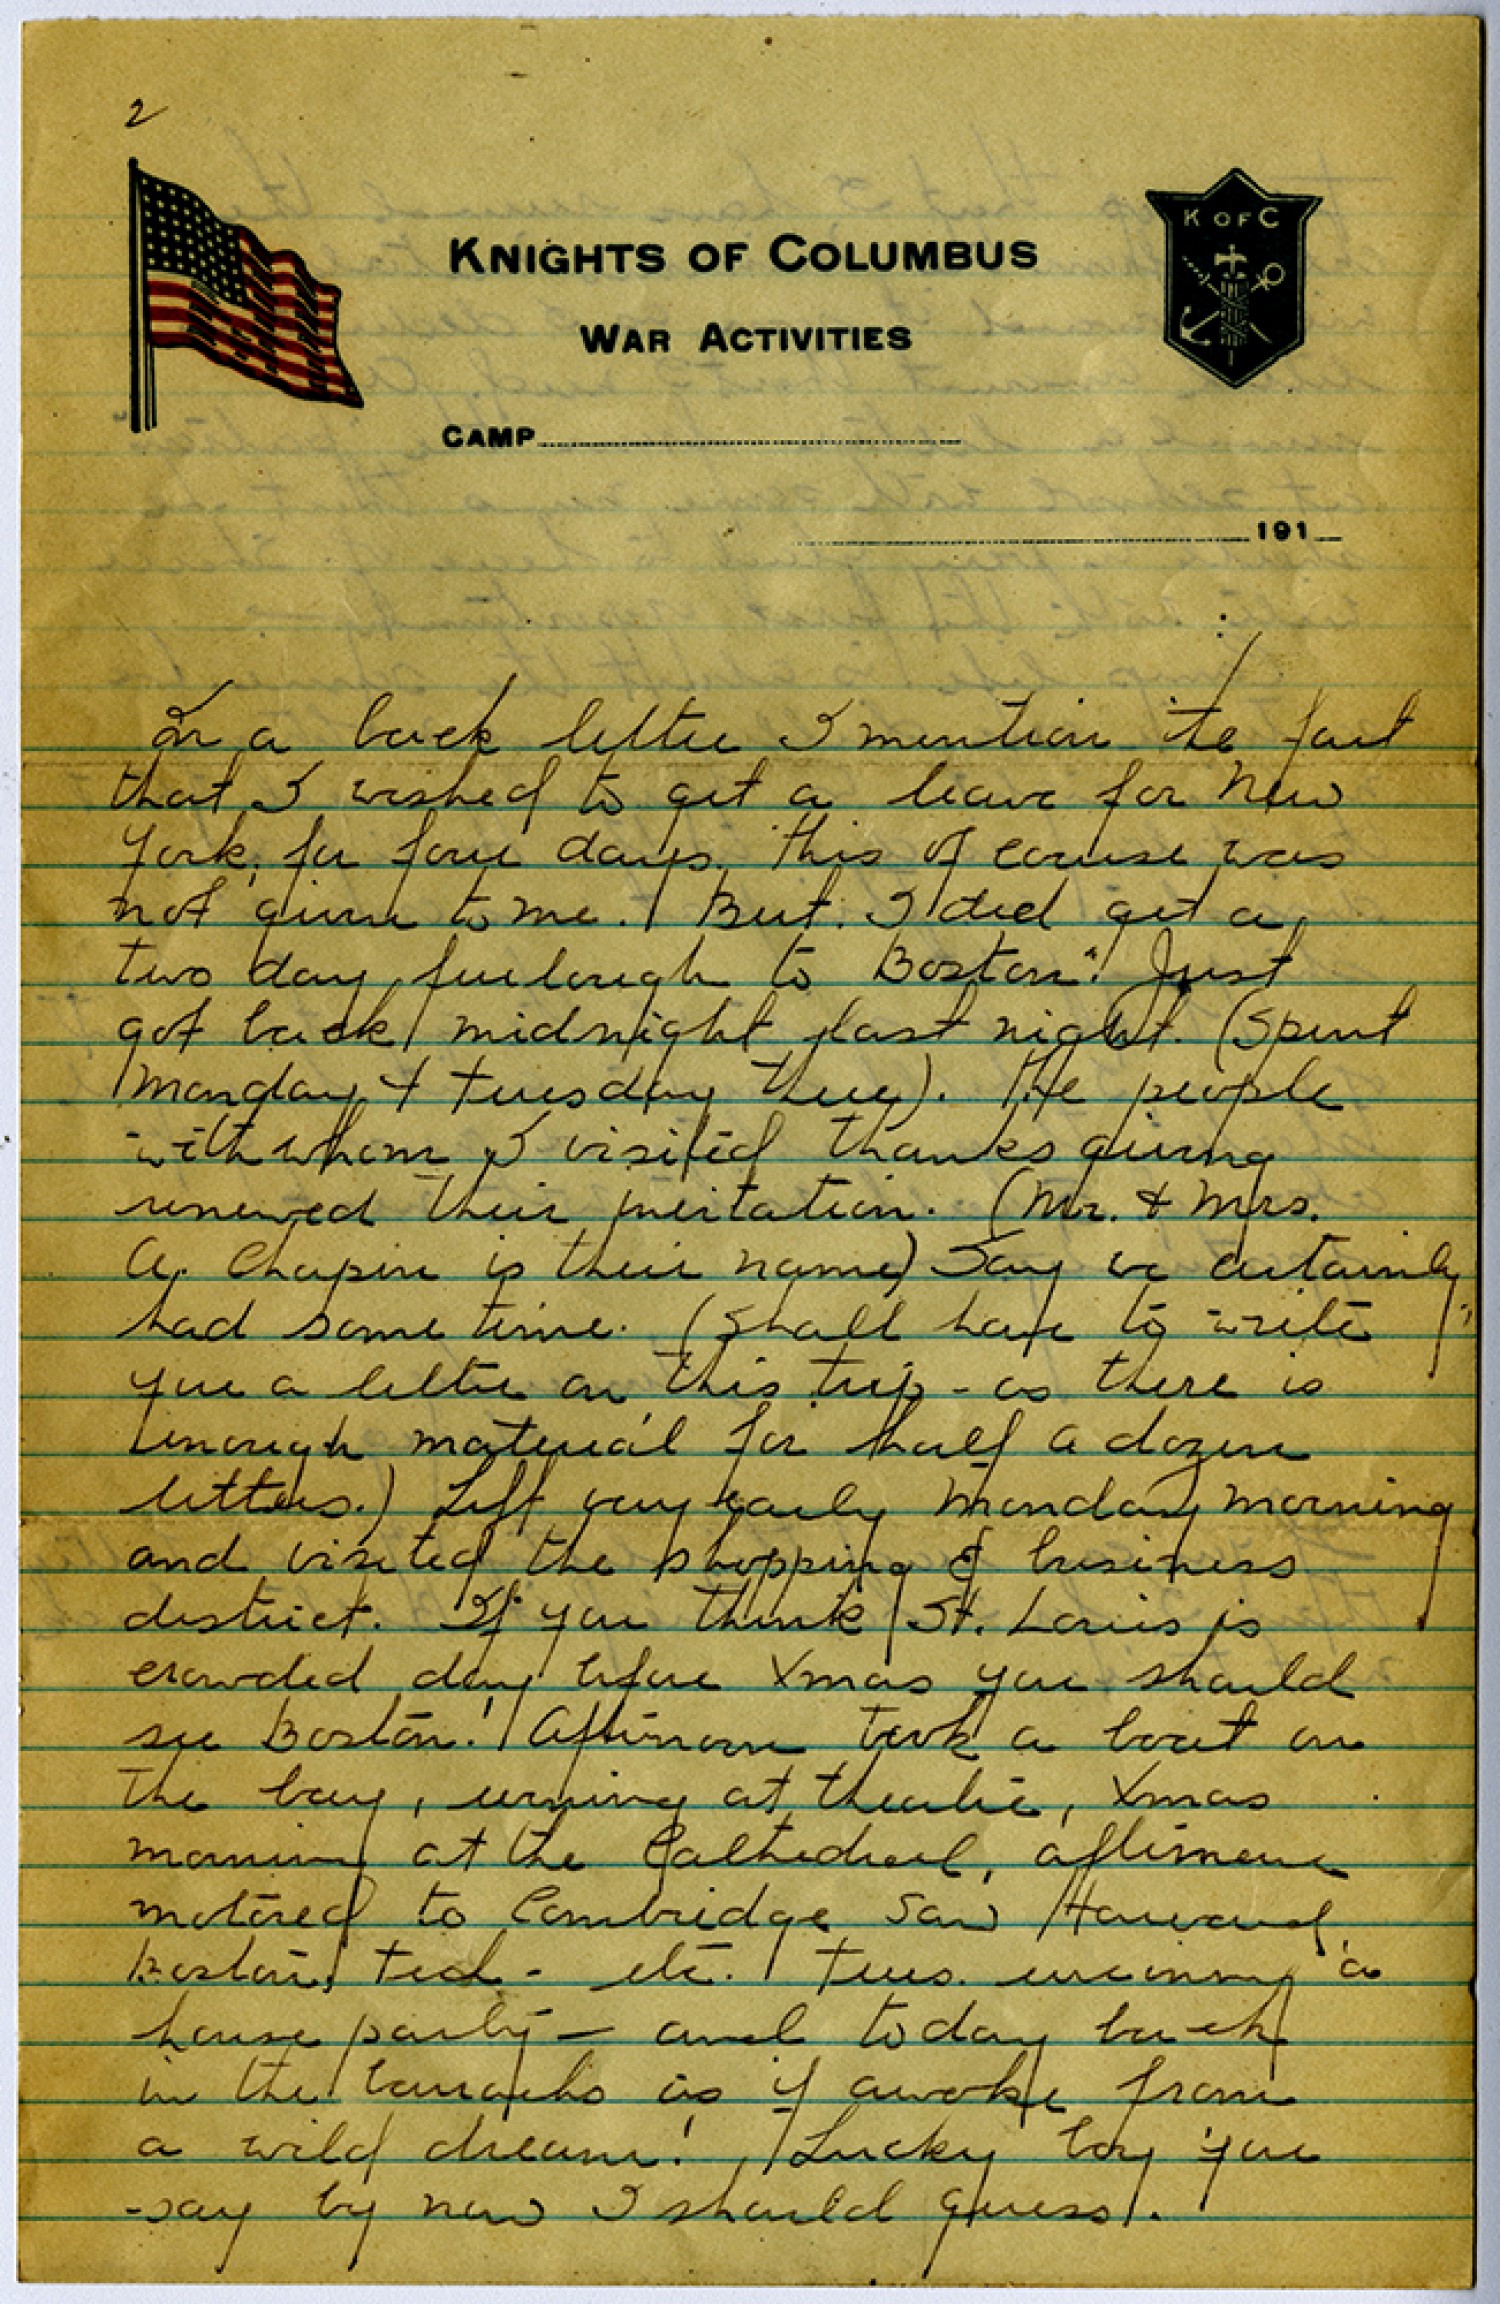 2
KNIGHTS OF COLUMBUS
WAR ACTIVITIES
K OF C
CAMP
191
In a back letter I mention the fact
that I wished to get a leave for New
York, for four days. This of course was
not given to me. But I did get a
two day furlough to Boston. Just
got back midnight last night. (Spent
Monday & Tuesday there). The people
with whom I visited thanksgiving
renewed their invitation. (Mr. & Mrs.
A. Chapin is their name) Say we certainly
had some time. (Shall have to write
you a letter on this trip - as there is
enough material for half a dozen
letters.) Left very early Monday morning
and visited the shopping & business
district. If you think St. Louis is
crowded day before Xmas you should
see Boston! Afternoon took a boat on
the bay, evening at theatre, Xmas
morning at the Cathedral, afternoon
motored to Cambridge saw Harvard,
Boston Tech - etc. Tues. evening a
house party - and today back
in the barracks as if awoke from
a wild dream! Lucky boy you
say by now I should guess.